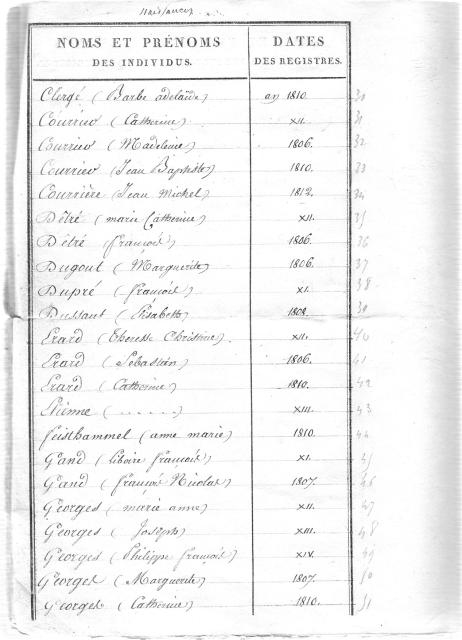 Naissances
NOMS ET PRÉNOMS
DES INDIVIDUS.
DATES
DES REGISTRES.
Clergé (Barbe adelaïde) an 1810. 30
Courrier (Catherine) XII. 31
Courrier (Madeleine) 1806. 32
Courrier (Jean Baptiste) 1810. 33
Courrière (Jean Michel) 1812. 34
Détré (marie Catherine) XII. 35
Détré (françois) 1806. 36
Dugout (Marguerite) 1806. 37
Dupré (françois) XI. 38
Dussaut (Elisabeth) 1808. 39
Erard (Theresse Christine) XII. 40
Erard (Sébastien) 1806. 41
Erard (Catherine) 1810. 42
Etienne (......) XIII. 43
feisthammel (anne marie) 1810. 44
Grand (liboire françois) XI. 45
Grand (françois Nicolas) 1807. 46
Georges (marie anne) XII. 47
Georges (Joseph) XIII. 48
Georges (Philippe françois) XIV. 49
Georges (Marguerite) 1807. 50
Georges (Catherine) 1810. 51